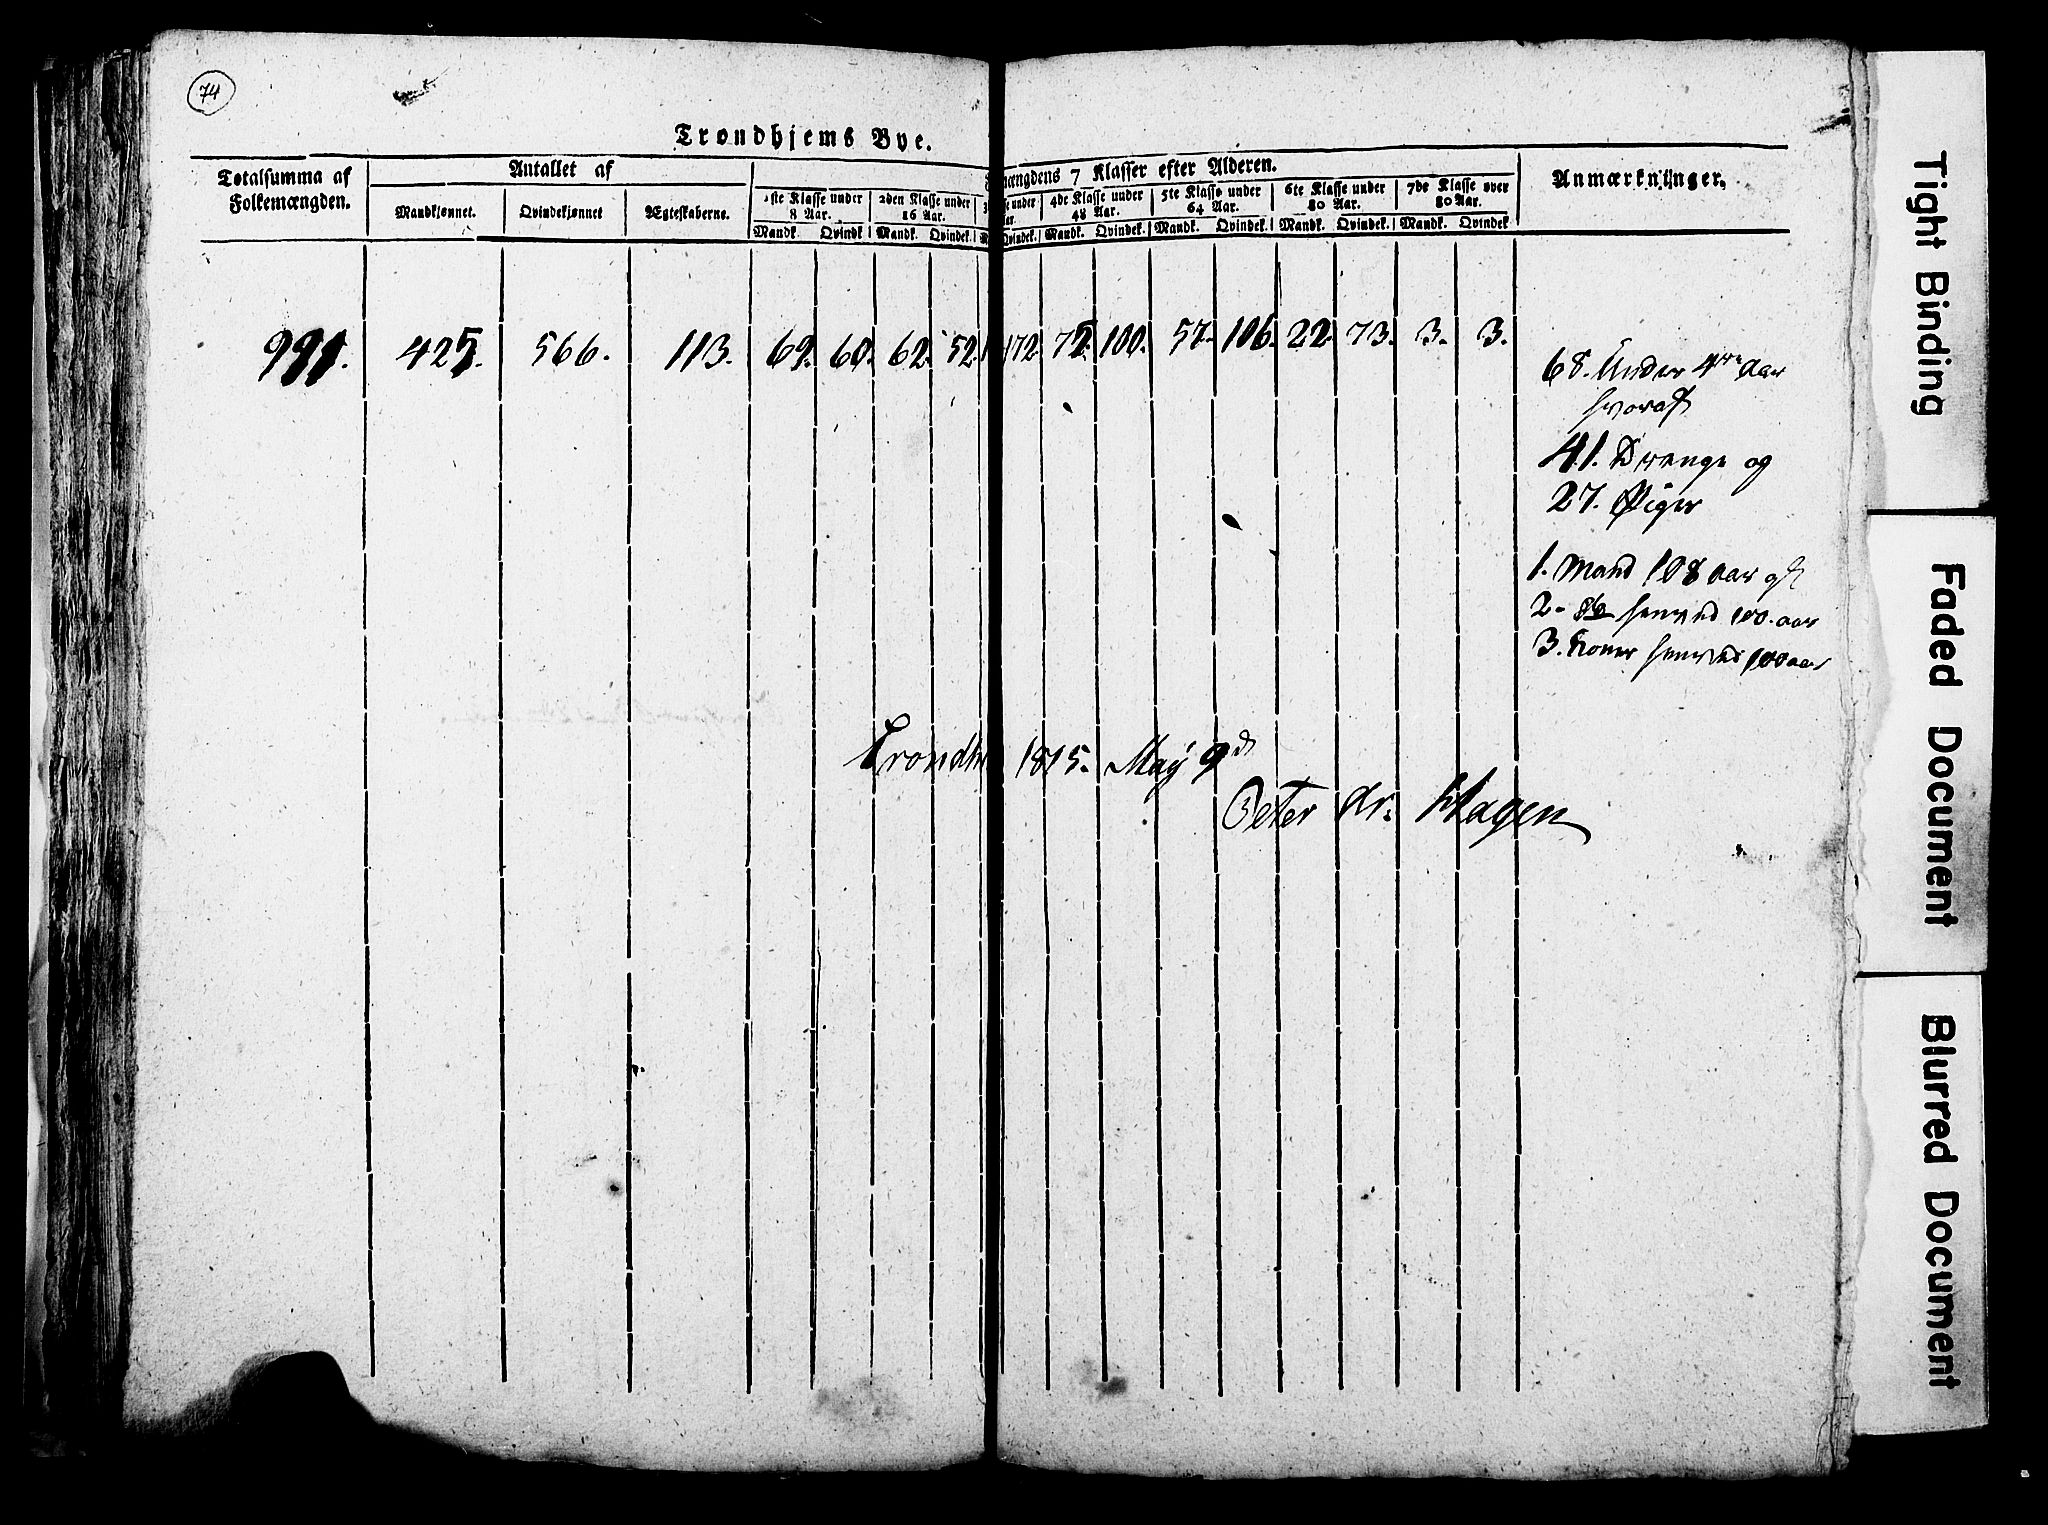 74
Trondhjems Bye.
Totalsumma af Folkemængden.
Antallet af
Mandkjønnet. Qvindekjønnet Ægteskaberne.
mængdens 7 Klasser efter Alderen.
1ste Klasse under 8 Aar. 2den Klasse under 16 Aar. 4de Klasse under 48 Aar. 5te Klasse under 64 Aar. 6te Klasse under 80 Aar. 7de Klasse over 80 Aar.
Mandk. Qvindk Mandk. Qvindek. Qvindek. Mandk. Qvindek. Mandk. Qvindek. Mandk. Qvindek. Mandk. Qvindek
Anmærkninger.
991. 425. 566. 113. 69. 60. 62. 52. 172. 72. 100. 57. 106. 22. 73. 3. 3.
68. Under 4re Aar
hvoraf
41. Drenge og
27. Piger
1. Mand 108 aar
2. henved 100. aar
3. Koner henved 100 aar
Trondh 1815. May 9d
Peter Hagen
Tight Binding
Faded Document
Blurred Document